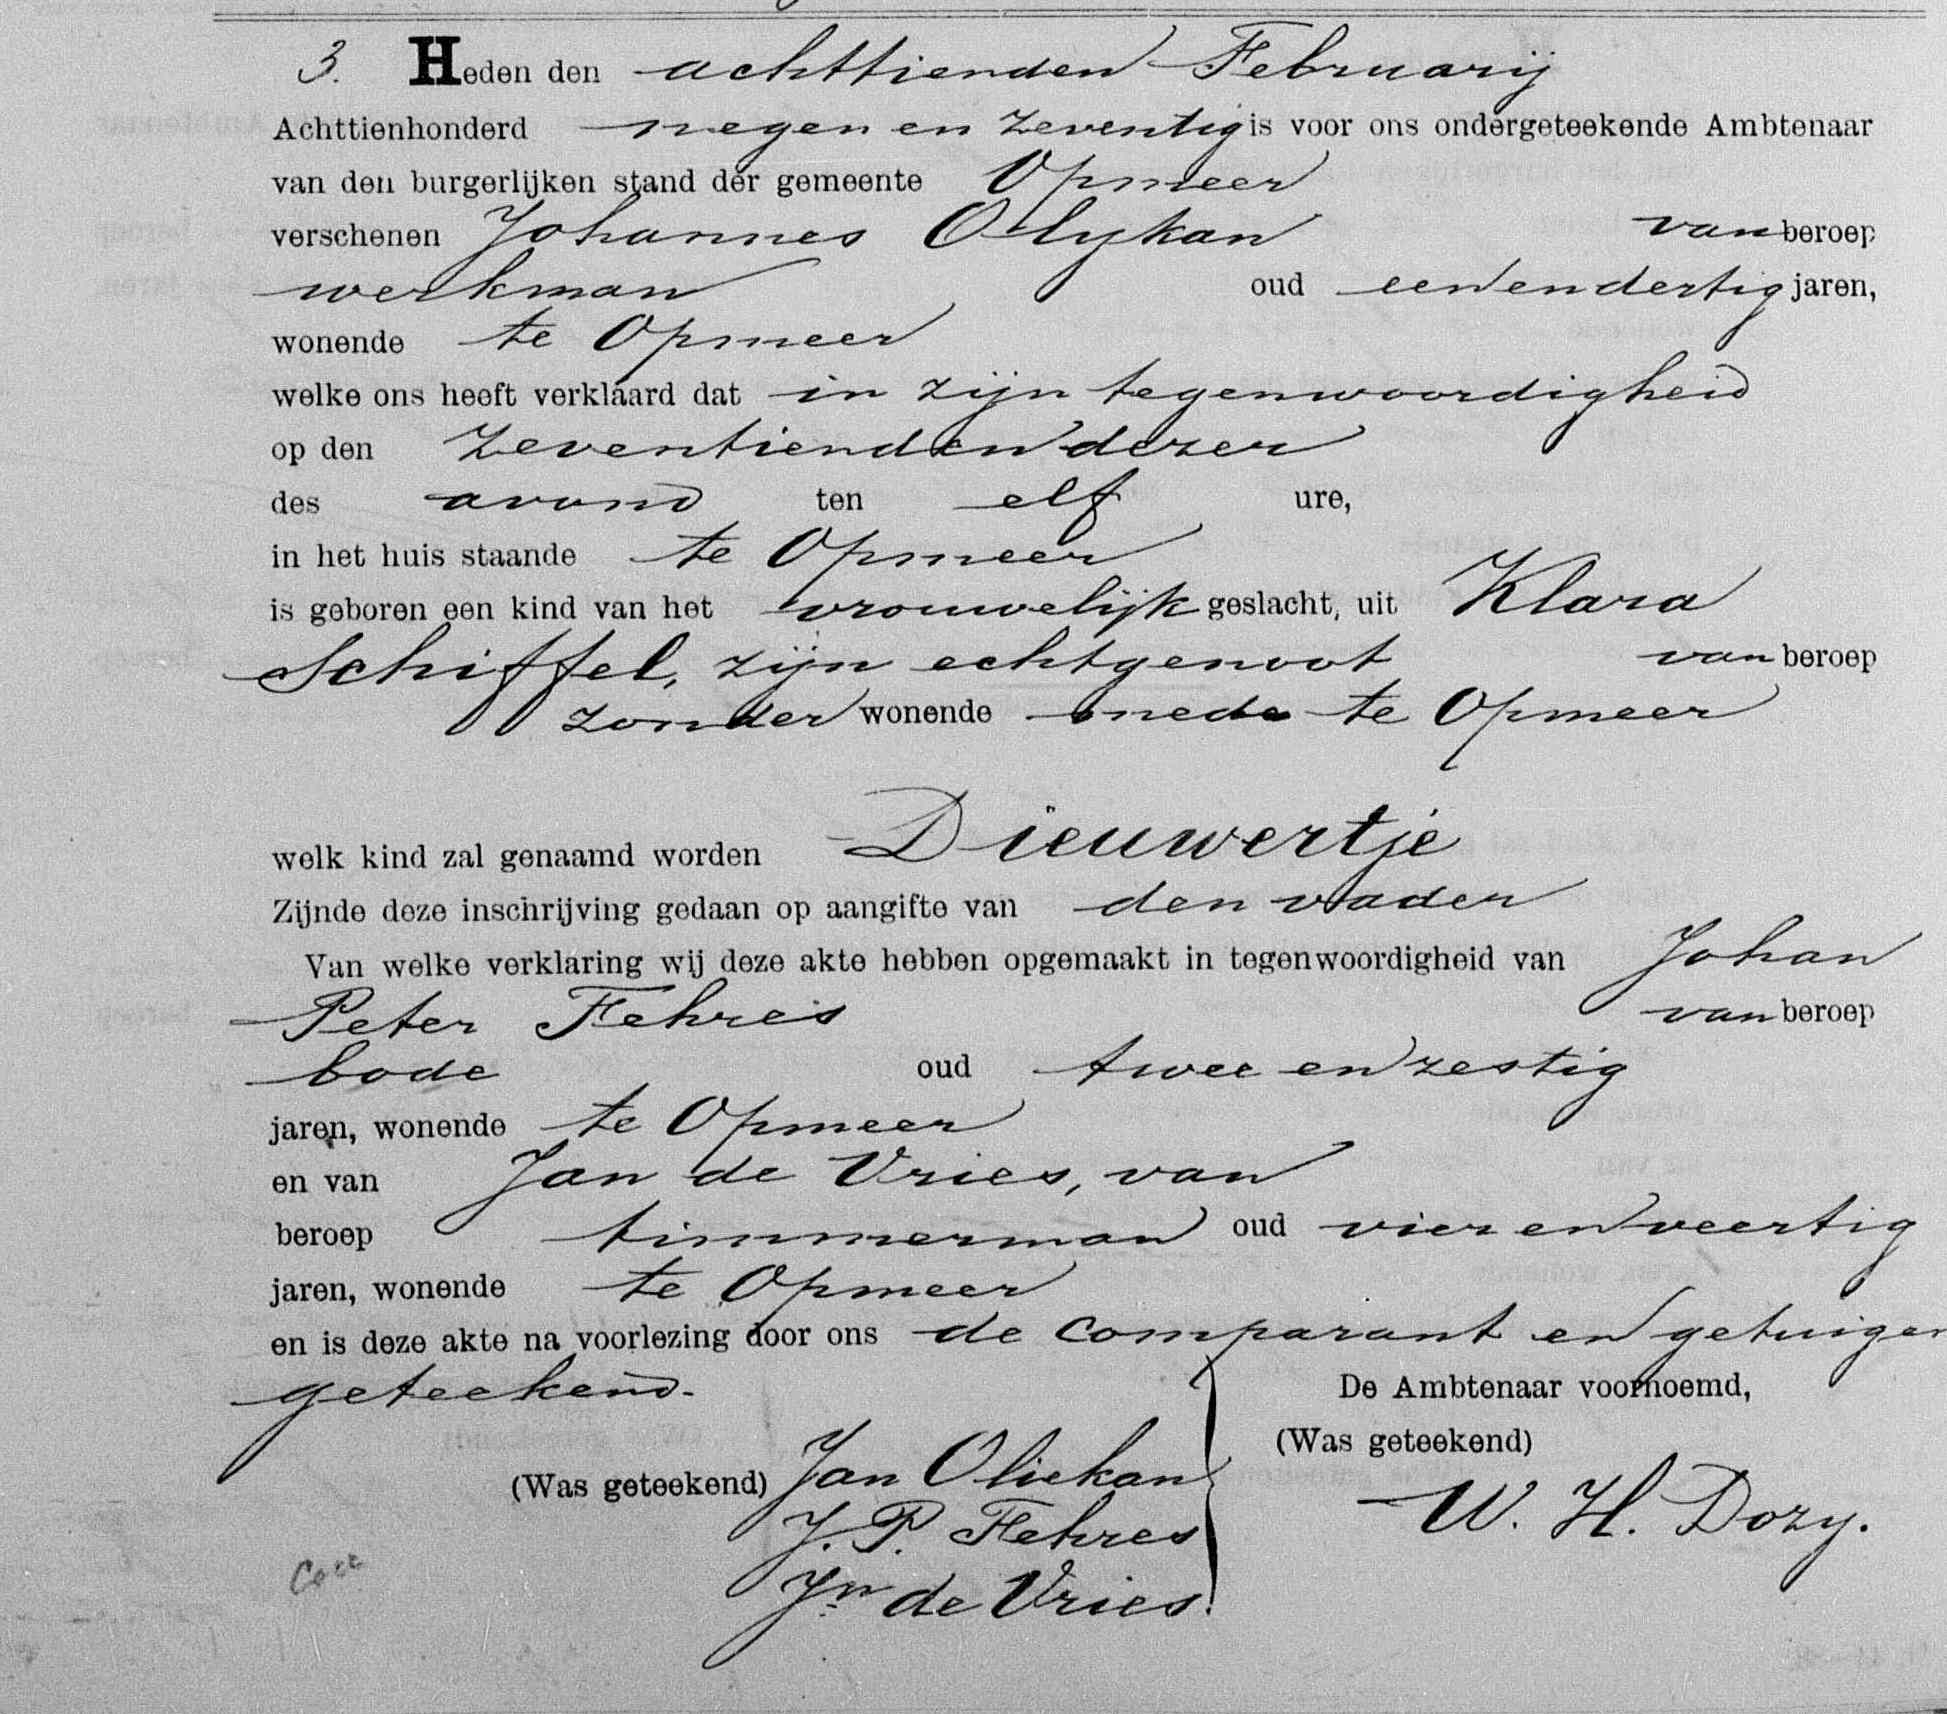 3. Heden den achttienden Februarij
Achttienhonderd negen en zeventig is voor ons ondergeteekende Ambtenaar
van den burgerlijken stand der gemeente Opmeer
verschenen Johannes Olykan van beroep
werkman oud een en dertig jaren,
wonende te Opmeer
welke ons heeft verklaard dat in zijn tegenwoordigheid
op den zeventienden dezer
des avond ten elf ure,
in het huis staande te Opmeer
is geboren een kind van het vrouwelijk geslacht, uit Klara
Schiffel, zijn echtgenoot van beroep
zonder wonende mede te Opmeer
welk kind zal genaamd worden Dieuwertje
Zijnde deze inschrijving gedaan op aangifte van den vader
Van welke verklaring wij deze akte hebben opgemaakt in tegenwoordigheid van Johan
Peter Fehres van beroep
bode oud twee en zestig
jaren, wonende te Opmeer
en van Jan de Vries, van
beroep timmerman oud vier en veertig
jaren, wonende te Opmeer
en is deze akte na voorlezing door ons de comparant en getuigen
geteekend.
De Ambtenaar voornoemd,
(Was geteekend) Jan Oliekan
J. P. Fehres
Jn de Vries.
(Was geteekend)
W. H. Dozy.